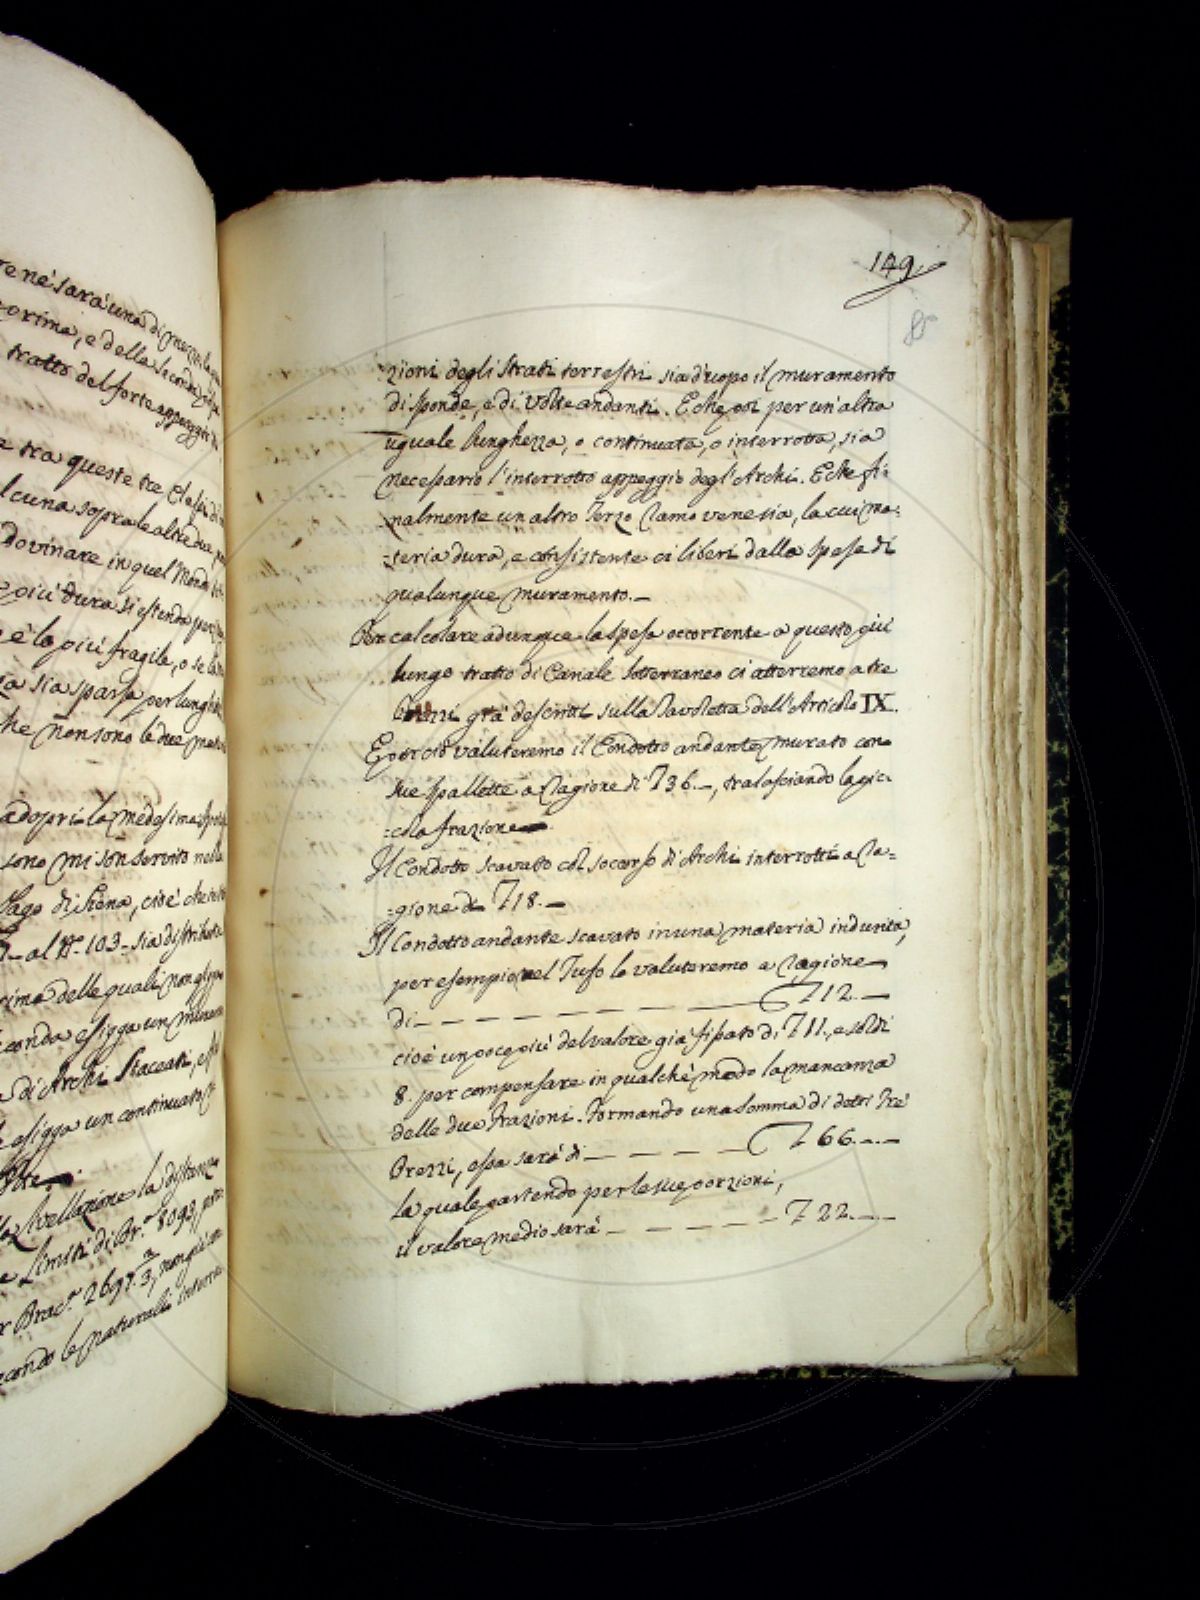 re ne sarà una di mezzo, la
prima, e della seconda,
tratto del forte appoggio di
tra queste tre Classi di
lcuna sopra le altre due,
dovinare in quel Mondo
più dura si estenda per
è la più fragile, o se la
ia sia sparsa per lunghi
he non sono le due
adopri la medesima
sono mi son servito nella
Pago di Siena, cioè che
al N.° 103 sia distribuita
rima delle quali non
conda esigga un
di Archi Staccati, e
esigga un continuato
Livellazione la distanza
Limiti di Br.ª 8093,
r Brac.ª 2697. 2/3, non già
condo le naturali
149.
85
=zioni degli strati terrestri sia d'uopo il muramento
di sponde, e di Volte andanti. E che poi per un'altra
uguale lunghezza, o continuata, o interrotta, sia
necessario l'interrotto appoggio degl'Archi. E che fi=
=nalmente un altro Terzo ramo venesia, la cui ma=
=teria dura, e consistente ci liberi dalla spesa di
qualunque muramento.—
Per calcolare adunque la spesa occorrente a questo più
lungo tratto di Canale sotterraneo ci atterremo a tre
Prezzi già descritti sulla Tavoletta dell'Articolo IX.
E perciò valuteremo il Condotto andante, murato con
sue spallette a ragione di 𝒯 36.—, tralasciando la pic=
=cola frazione
Il Condotto scavato col soccorso di Archi interrotti a ra=
=gione di 𝒯 18.—
Il Condotto andante scavato in una materia indurita,
per esempio nel Tufo lo valuteremo a ragione
di — — — — — — — — 𝒯 12.—
cioè un poco più del valore già fissato di 𝒯 11., e soldi
8. per compensare in qualche modo la mancanza
delle due frazioni. Formando una somma di detti Tre
Prezzi, essa sarà di — — — — 𝒯 66.—.—
la quale partendo per le sue porzioni,
il valore medio sarà — — — — 𝒯 22.—.—